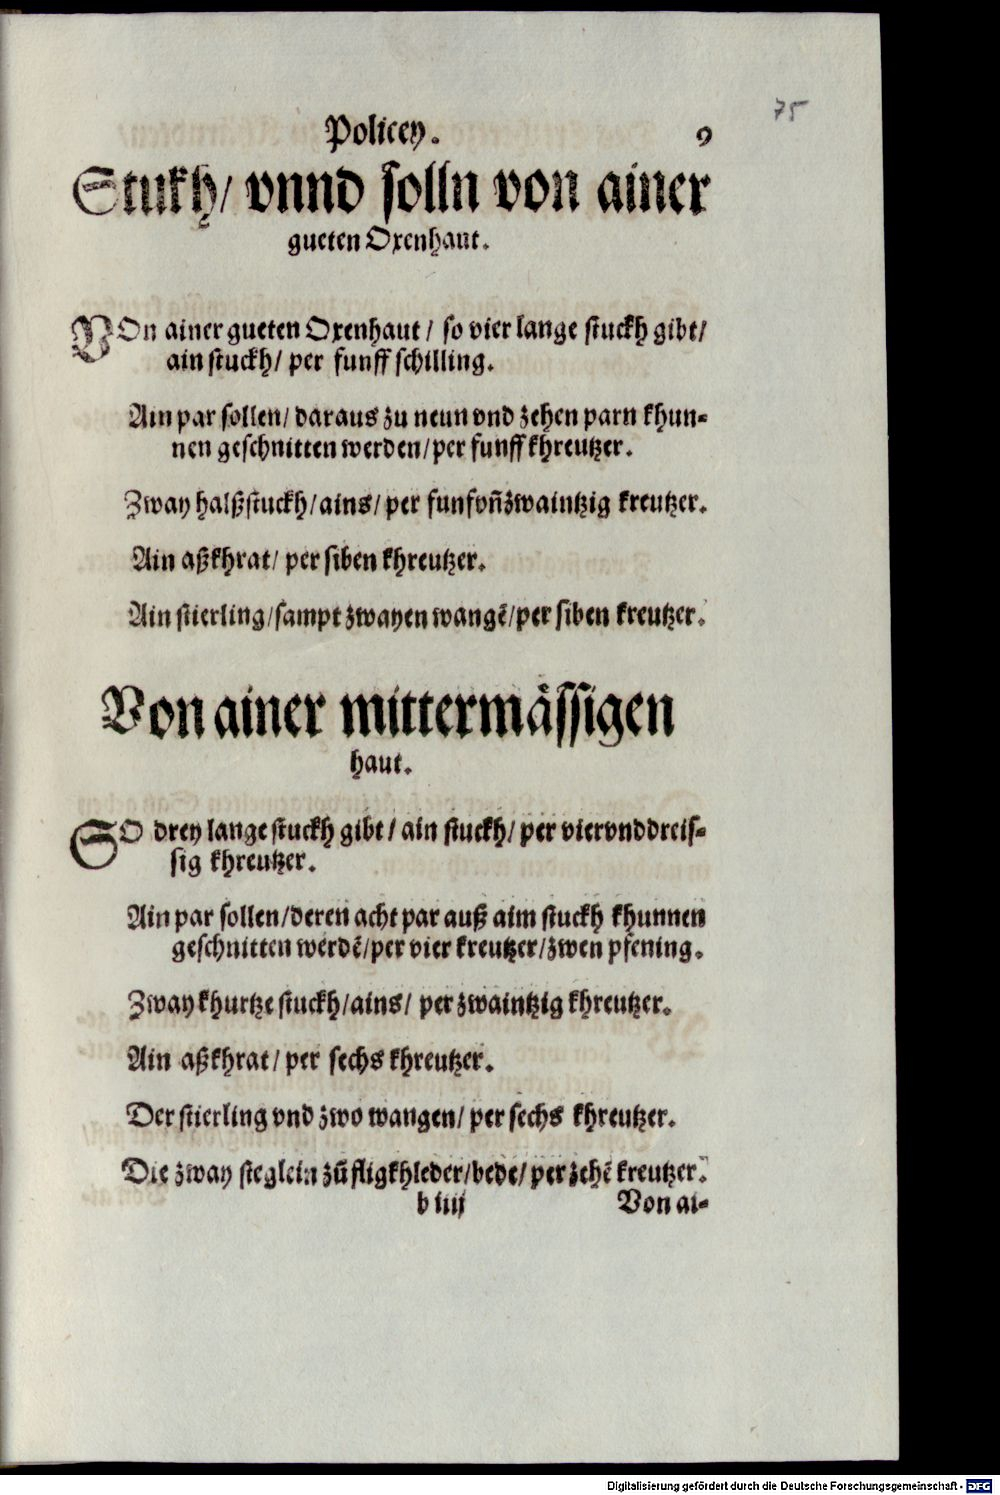 75
Policey. 9
Stukh/ vnnd solln von ainer
gueten Oxenhaut.
VOn ainer gueten Oxenhaut / so vier lange stuckh gibt/
ain stuckh/ per funff schilling.
Ain par sollen/ daraus zu neun vnd zehen parn khun-
nen geschnitten werden/ per funff khreutzer.
Zway halßstuckh/ ains/ per funfvñzwaintzig kreutzer.
Ain aßkhrat/ per siben khreutzer.
Ain stierling/ sampt zwayen wangẽ/ per siben kreutzer.
Von ainer mittermässigen
haut.
SO drey lange stuckh gibt / ain stuckh/ per viervnddreis-
sig khreutzer.
Ain par sollen/ deren acht par auß aim stuckh khunnen
geschnitten werdẽ/ per vier kreutzer/ zwen pfening.
Zway khurtze stuckh/ ains/ per zwaintzig khreutzer.
Ain aßkhrat/ per sechs khreutzer.
Der stierling vnd zwo wangen/ per sechs khreutzer.
Die zway sieglein zũ fligkhleder/ bede/ per zehẽ kreutzer.
b iiij Von ai-
Digitalisierung gefördert durch die Deutsche Forschungsgemeinschaft - DFG